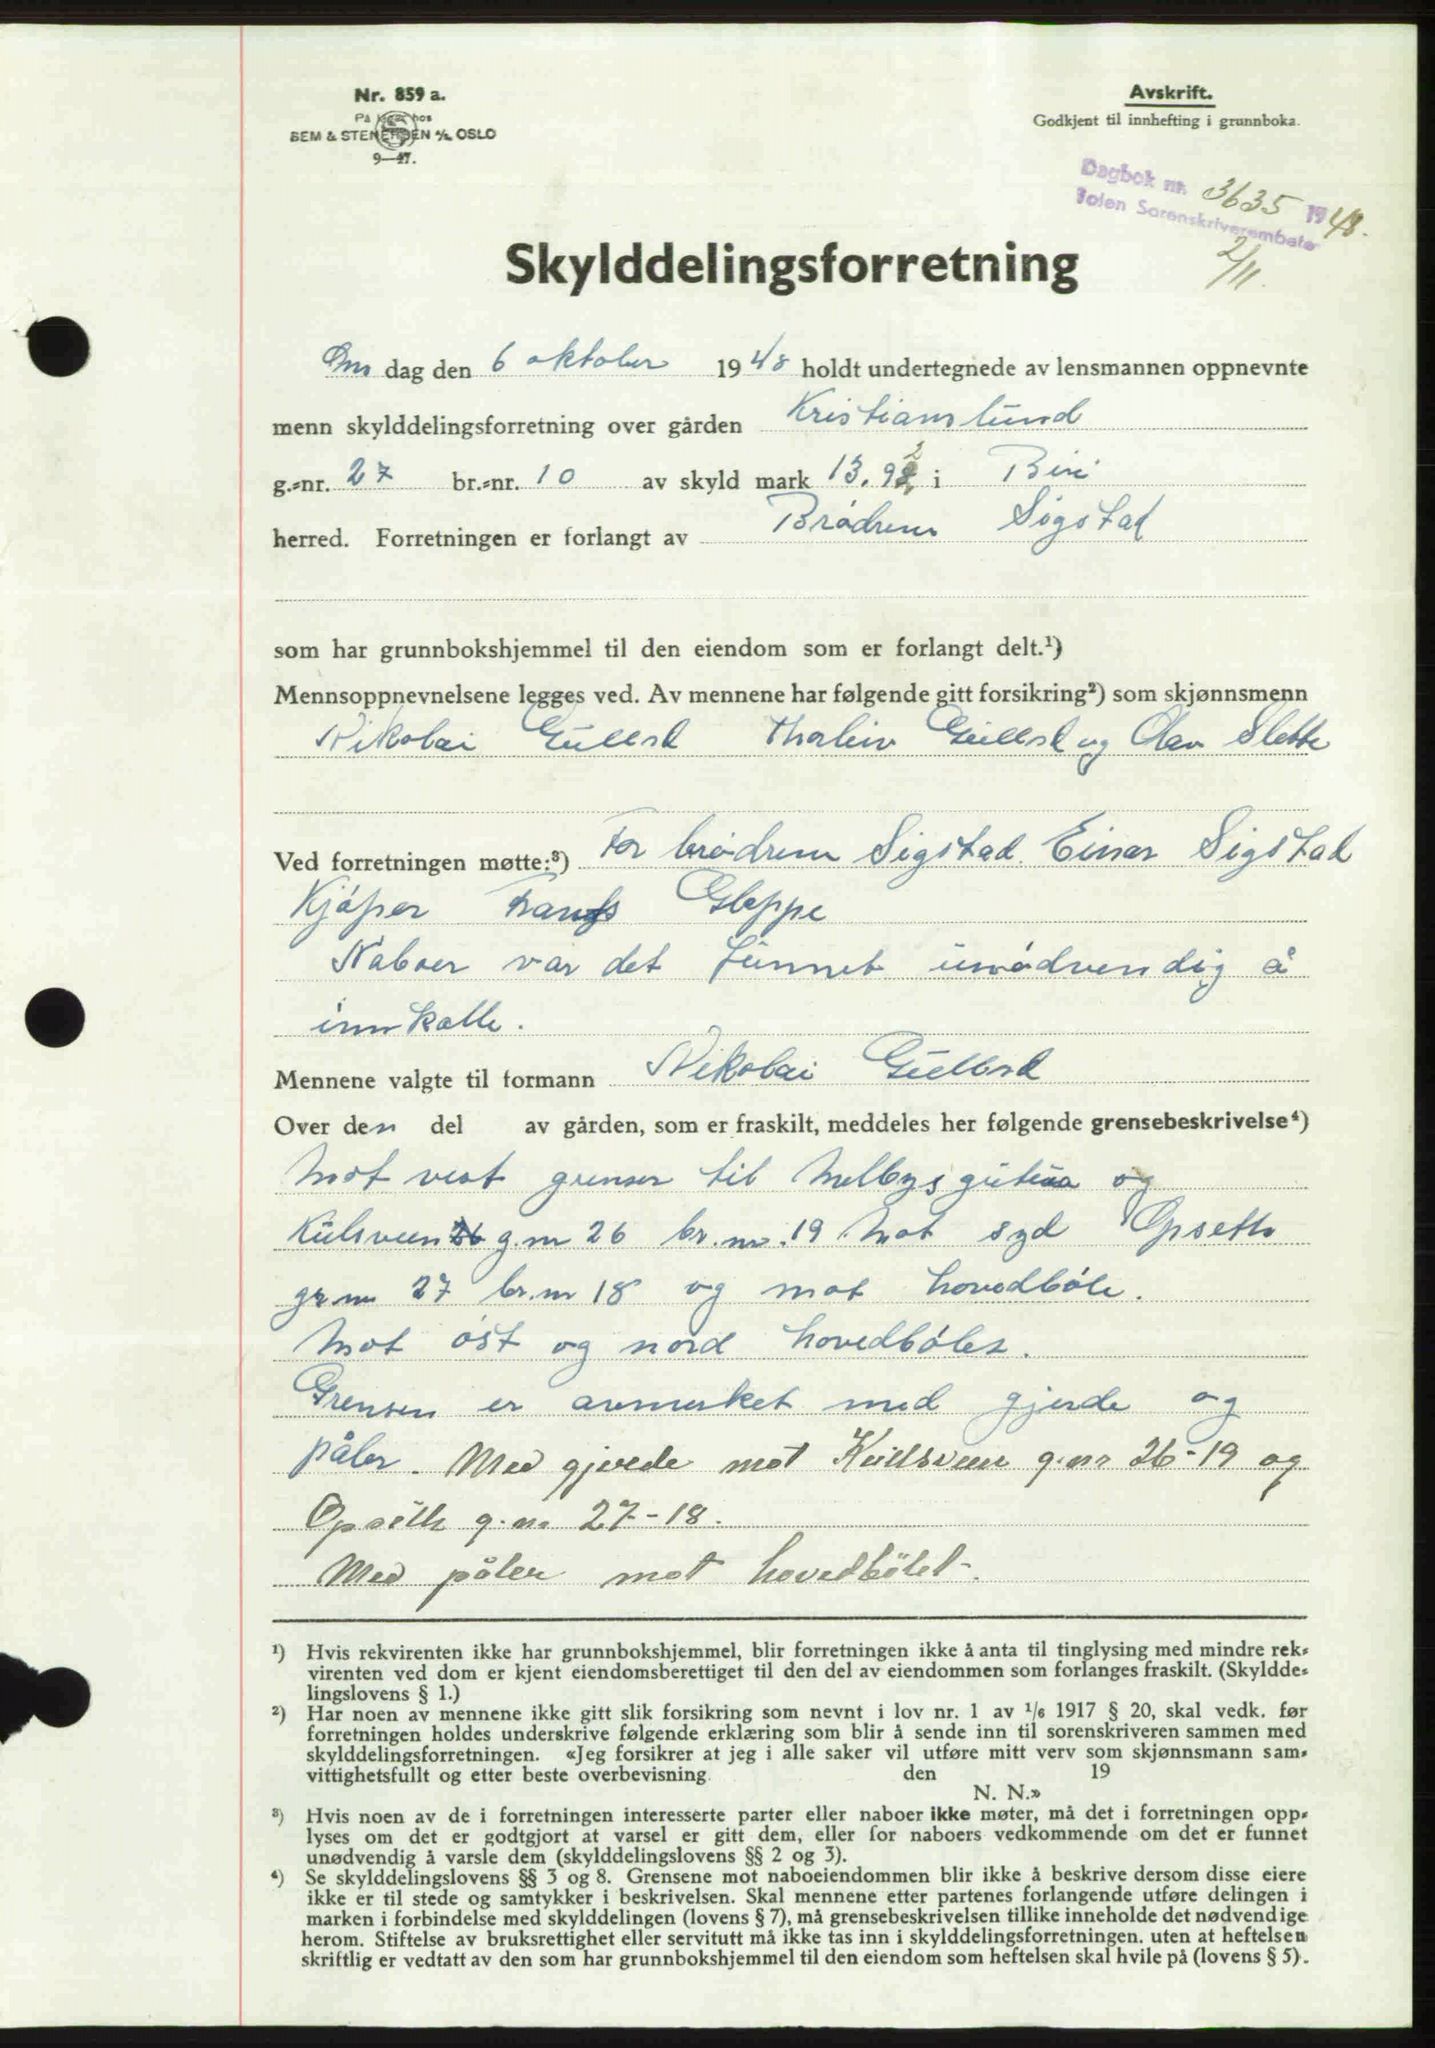 Nr. 859 a.
På lager hos
BEM & STENERSEN A/S OSLO
9—47.
Avskrift.
Godkjent til innhefting i grunnboka.
Dagbok nr. 3635 1948.
Toten Sorenskriverembete
2/11.
Skylddelingsforretning
Ons dag den 6 oktober 1948 holdt undertegnede av lensmannen oppnevnte
menn skylddelingsforretning over gården Kristianslund
g.-nr. 27 br.-nr. 10 av skyld mark 13.92 i Biri
herred. Forretningen er forlangt av Brødrene Sigstad
som har grunnbokshjemmel til den eiendom som er forlangt delt.¹)
Mennsoppnevnelsene legges ved. Av mennene har følgende gitt forsikring²) som skjønnsmenn
Nikolai Gullord Thorleiv Gullord og Olav Slette
Ved forretningen møtte:³) For brødrene Sigstad Einar Sigstad
Kjøper Frants Gleppe
Naboer var det funnet unødvendig å
innkalle.
Mennene valgte til formann Nikolai Gullord
Over den del av gården, som er fraskilt, meddeles her følgende grensebeskrivelse⁴)
Mot vest grenser til Melbysgutua og
Kulsveen g.nr 26 br.nr. 19 Mot syd Opseth
gr.nr 27 br.nr 18 og mot hovedbøle.
Mot øst og nord hovedbølet.
Grensen er avmerket med gjerde og
påler. Med gjerde mot Kullsveen g.nr 26-19 og
Opseth g.nr 27-18.
Med påler mot hovedbölet.
¹) Hvis rekvirenten ikke har grunnbokshjemmel, blir forretningen ikke å anta til tinglysing med mindre rek-
virenten ved dom er kjent eiendomsberettiget til den del av eiendommen som forlanges fraskilt. (Skyldde-
lingslovens § 1.)
²) Har noen av mennene ikke gitt slik forsikring som nevnt i lov nr. 1 av 1/6 1917 § 20, skal vedk. før
forretningen holdes underskrive følgende erklæring som blir å sende inn til sorenskriveren sammen med
skylddelingsforretningen. «Jeg forsikrer at jeg i alle saker vil utføre mitt verv som skjønnsmann sam-
vittighetsfullt og etter beste overbevisning. den 19
N. N.»
³) Hvis noen av de i forretningen interesserte parter eller naboer ikke møter, må det i forretningen opp-
lyses om det er godtgjort at varsel er gitt dem, eller for naboers vedkommende om det er funnet
unødvendig å varsle dem (skylddelingslovens §§ 2 og 3).
⁴) Se skylddelingslovens §§ 3 og 8. Grensene mot naboeiendommen blir ikke å beskrive dersom disse eiere
ikke er til stede og samtykker i beskrivelsen. Skal mennene etter partenes forlangende utføre delingen i
marken i forbindelse med skylddelingen (lovens § 7), må grensebeskrivelsen tillike inneholde det nødvendige
herom. Stiftelse av bruksrettighet eller servitutt må ikke tas inn i skylddelingsforretningen, uten at heftelsen
skriftlig er vedtatt av den som har grunnbokshjemmel til den eiendom som heftelsen skal hvile på (lovens § 5).